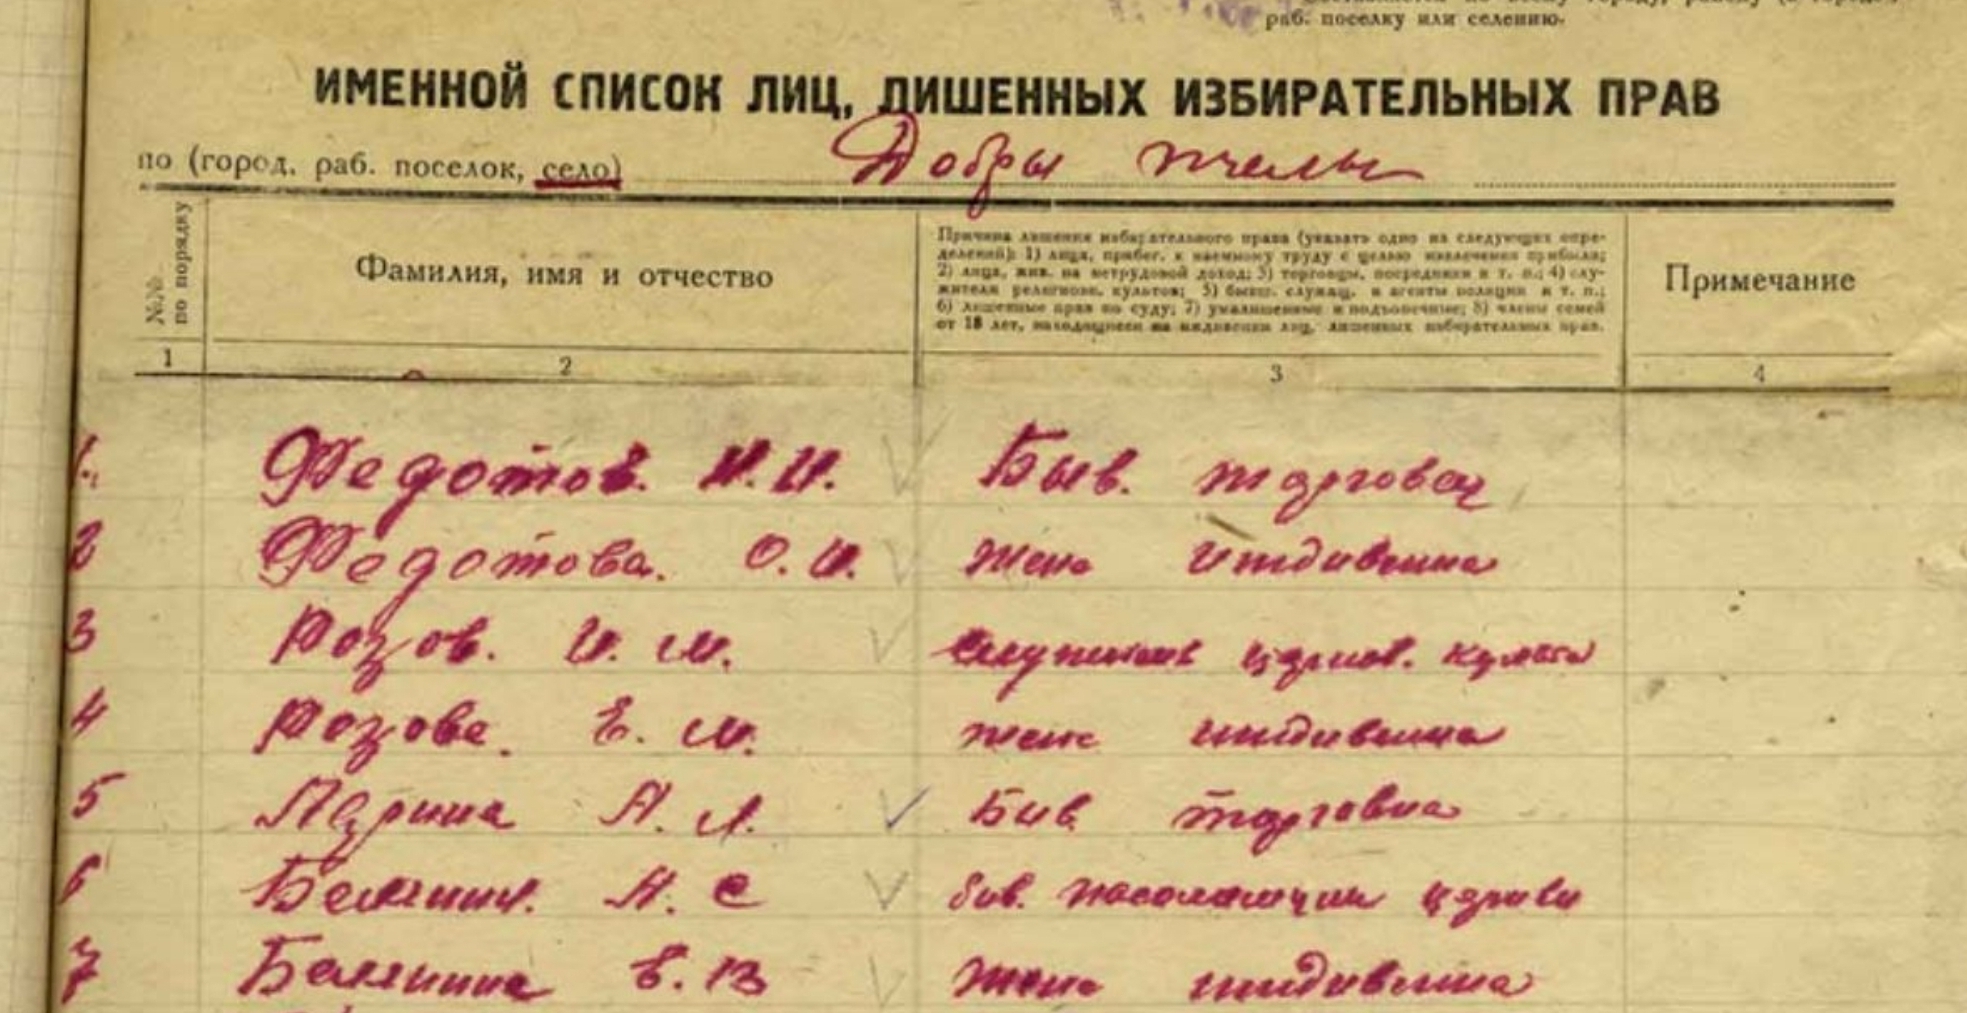 раб. поселку или селению.
ИМЕННОЙ СПИСОК ЛИЦ, ЛИШЕННЫХ ИЗБИРАТЕЛЬНЫХ ПРАВ
по (город, раб. поселок, село) Добры пчелы
№№ по порядку
Фамилия, имя и отчество
Причина лишения избирательного права (указать одно из следующих опре-
делений): 1) лица, прибег. к наемному труду с целью извлечения прибыли;
2) лица, жив. на нетрудовой доход; 3) торговцы, посредники и т. п.; 4) слу-
жители религиозн. культов; 5) бывш. служащ. и агенты полиции и т. п.;
6) лишенные прав по суду; 7) умалишенные и подопечные; 8) члены семей
от 18 лет, находящиеся на иждивении лиц, лишенных избирательных прав.
Примечание
1 2 3 4
1. Федотов. И. И. Быв. торговец
2 Федотова. О. И. Жена иждивенка
3 Розов. И. М. церков. культа
4 Розова. Е. М. жена иждивенка
5 А. Л. Быв торговка
6 Н. С быв. церкви
7 Е. В жена иждивенка